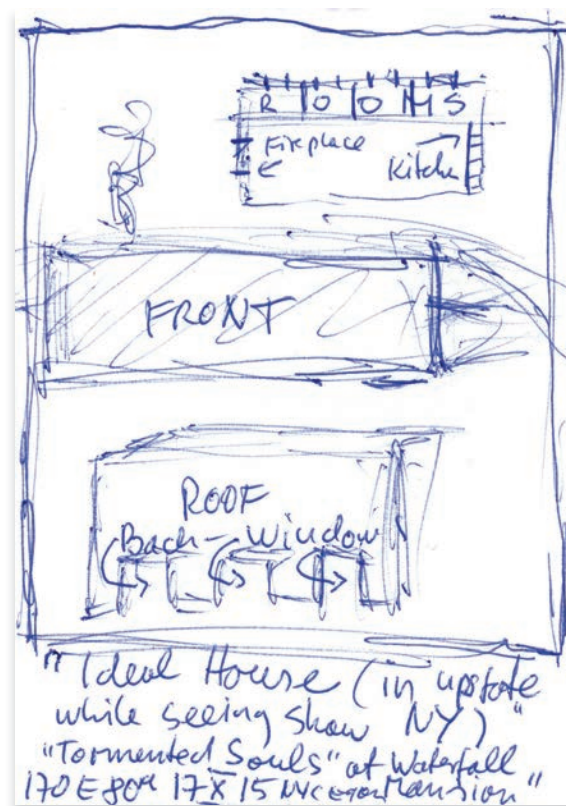 ROOMS
Fireplace
Kitchen
FRONT
ROOF
Back-Window
"Ideal House (in upstate
while seeing show NY)"
"Tormented Souls" at Waterfall
170 E 80th 17 X 15 NYC Mansion"